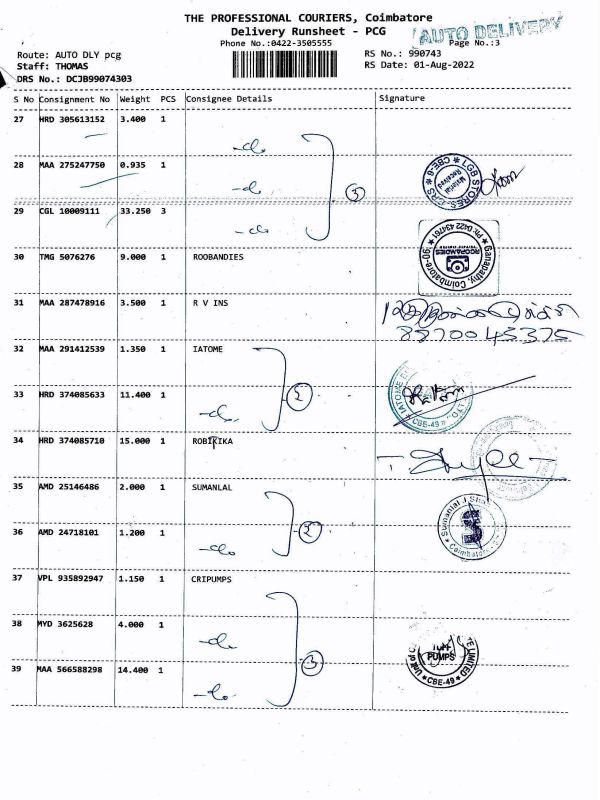 THE PROFESSIONAL COURIERS, Coimbatore
Delivery Runsheet - PCG
AUTO DELIVERY
Phone No.:0422-3505555
Page No.:3
Route: AUTO DLY pcg
RS No.: 990743
Staff: THOMAS
RS Date: 01-Aug-2022
DRS No.: DCJB99074303
S No Consignment No Weight PCS Consignee Details Signature
27 HRD 305613152 3.400 1 -do
28 MAA 275247750 0.935 1 -do 3
LGB STORES
Material Received
29 CGL 10009111 33.250 3 -do
30 TMG 5076276 9.000 1 ROOBANDIES
Ganapathy, Coimbatore
Ph: 0422 434761
31 MAA 287478916 3.500 1 R V INS
8870045375
32 MAA 291412539 1.350 1 IATOME
33 HRD 374085633 11.400 1 -do 2
IATOME
CBE-49
34 HRD 374085710 15.000 1 ROBIKIKA
35 AMD 25146486 2.000 1 SUMANLAL
Sumanlal J Sha
Coimbatore
36 AMD 24718101 1.200 1 -do 2
37 VPL 935892947 1.150 1 CRIPUMPS
38 MYD 3625628 4.000 1 -do
PUMPS
LIMITED
CBE-49
39 MAA 566588298 14.400 1 -do 3